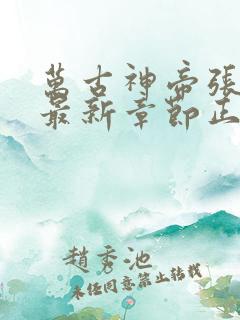 萬古神帝張
最新章節正
趙秀池
未经同意禁止转载